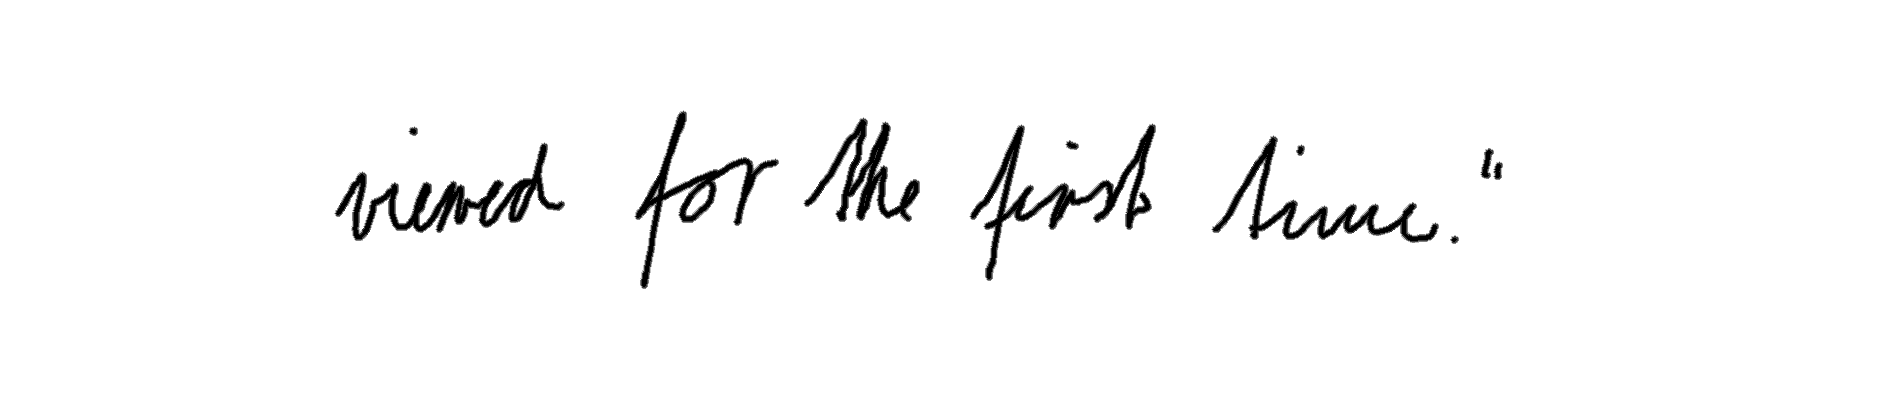 viewed for the first time."